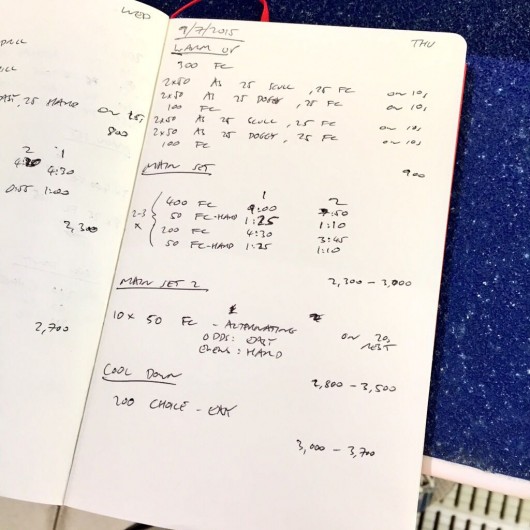 WED
DRILL
25 HAND
ON 25,
800
2 1
4:30
0:55 1:00
2,300
2,700
9/7/2015
THU
WARM UP
300 FC
2x50 AS 25 SCULL, 25 FC ON 10,
2x50 AS 25 DOGGY, 25 FC ON 10,
100 FC ON 10,
2x50 AS 25 SCULL, 25 FC ON 10,
2x50 AS 25 DOGGY, 25 FC ON 10,
100 FC
900
MAIN SET
1 2
400 FC 9:00 :50
2-3 x 50 FC-HAND 1:25 1:10
200 FC 4:30 3:45
50 FC-HAND 1:25 1:10
2,300 - 3,000
MAIN SET 2
10 x 50 FC - ALTERNATING ON 20,
ODDS: EASY REST
EVENS: HARD
2,800 - 3,500
COOL DOWN
200 CHOICE - EASY
3,000 - 3,700